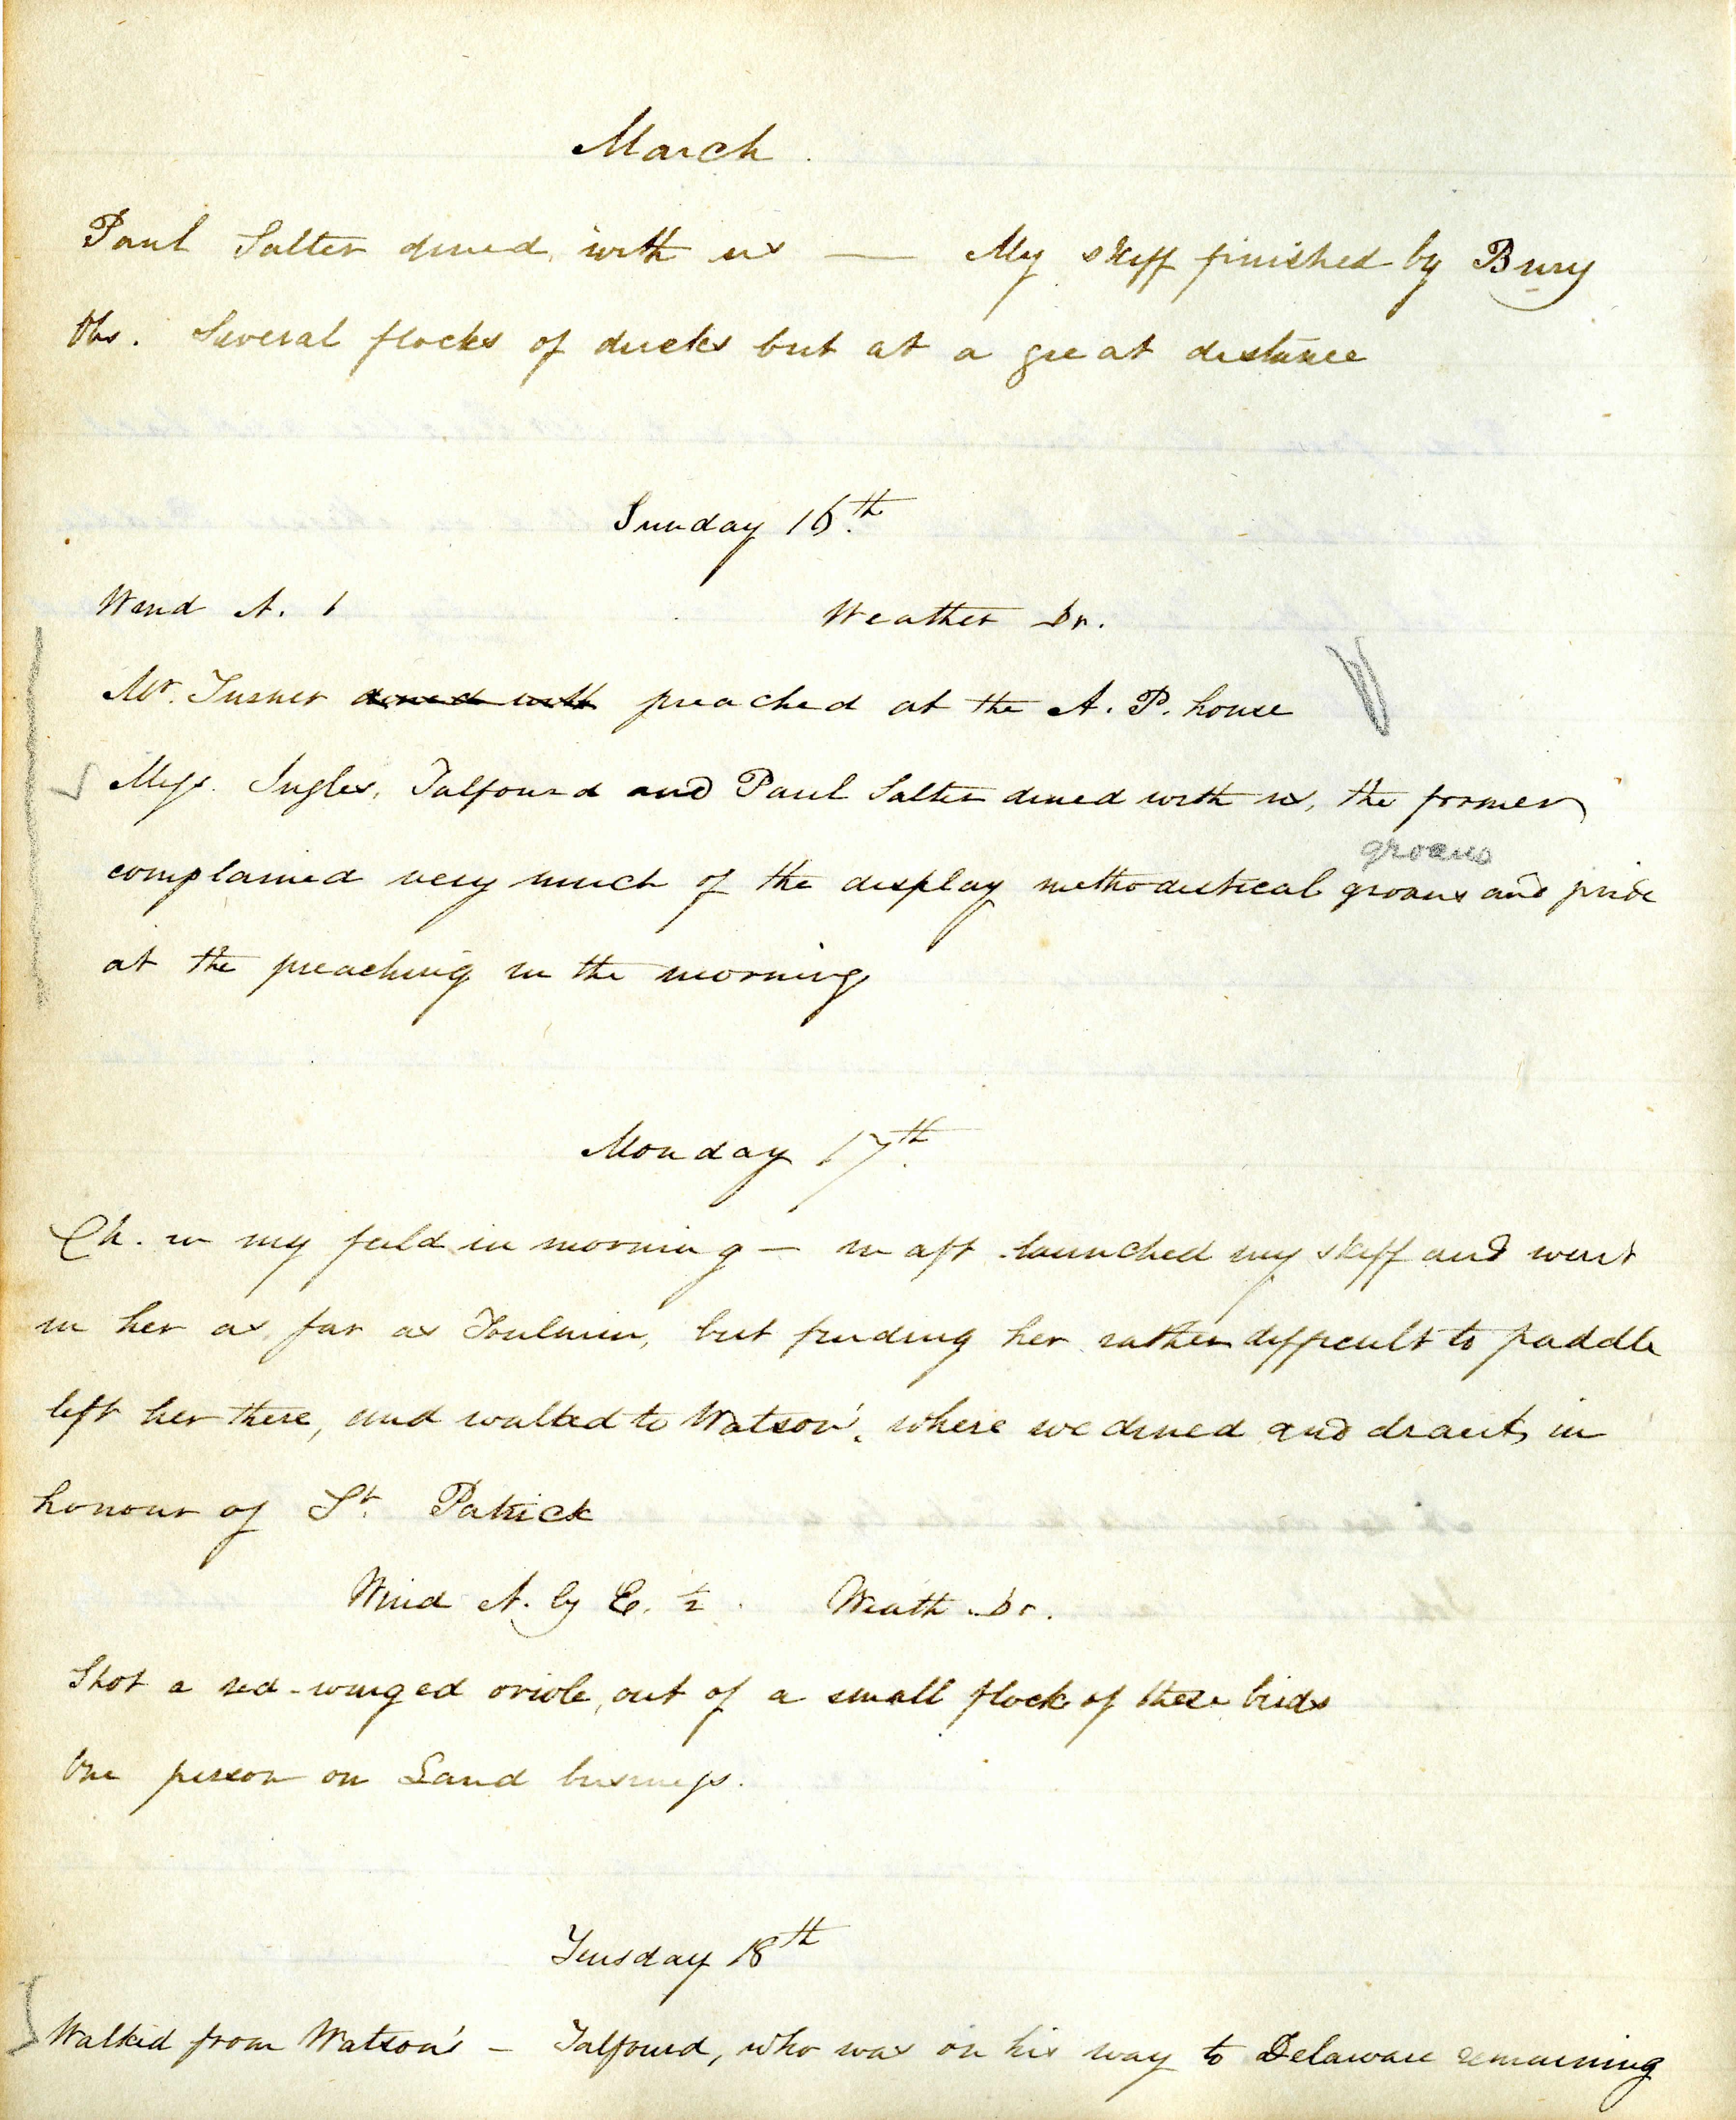 March
Paul Salter dined with us — My skiff finished by Bury
Obs. Several flocks of ducks but at a great distance
Sunday 16th
Wind N. 1 Weather Dr.
Mr. Turner dined with preached at the A. P. house
Messrs. Ingles, Talfourd and Paul Salter dined with us, the former
groans
complained very much of the display methodistical groans and pride
at the preaching in the morning
Monday 17th
Ch. in my field in morning — in aft launched my skiff and went
in her as far as Toulmin, but finding her rather difficult to paddle
left her there, and walked to Watson's where we dined and drank in
honour of St. Patrick
Wind N. by E. ½. Weath. Dr.
Shot a red-winged oriole, out of a small flock of these birds
One person on Land business.
Tuesday 18th
Walked from Watson's — Talfourd, who was on his way to Delaware remaining